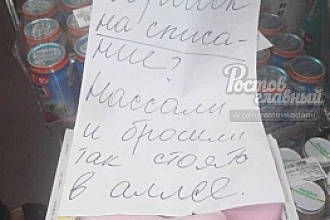 на списа-
ние?
Нассали
и бросили
так стоять
в аллее.
Ростов
главный
vk.com/rostovskadonu